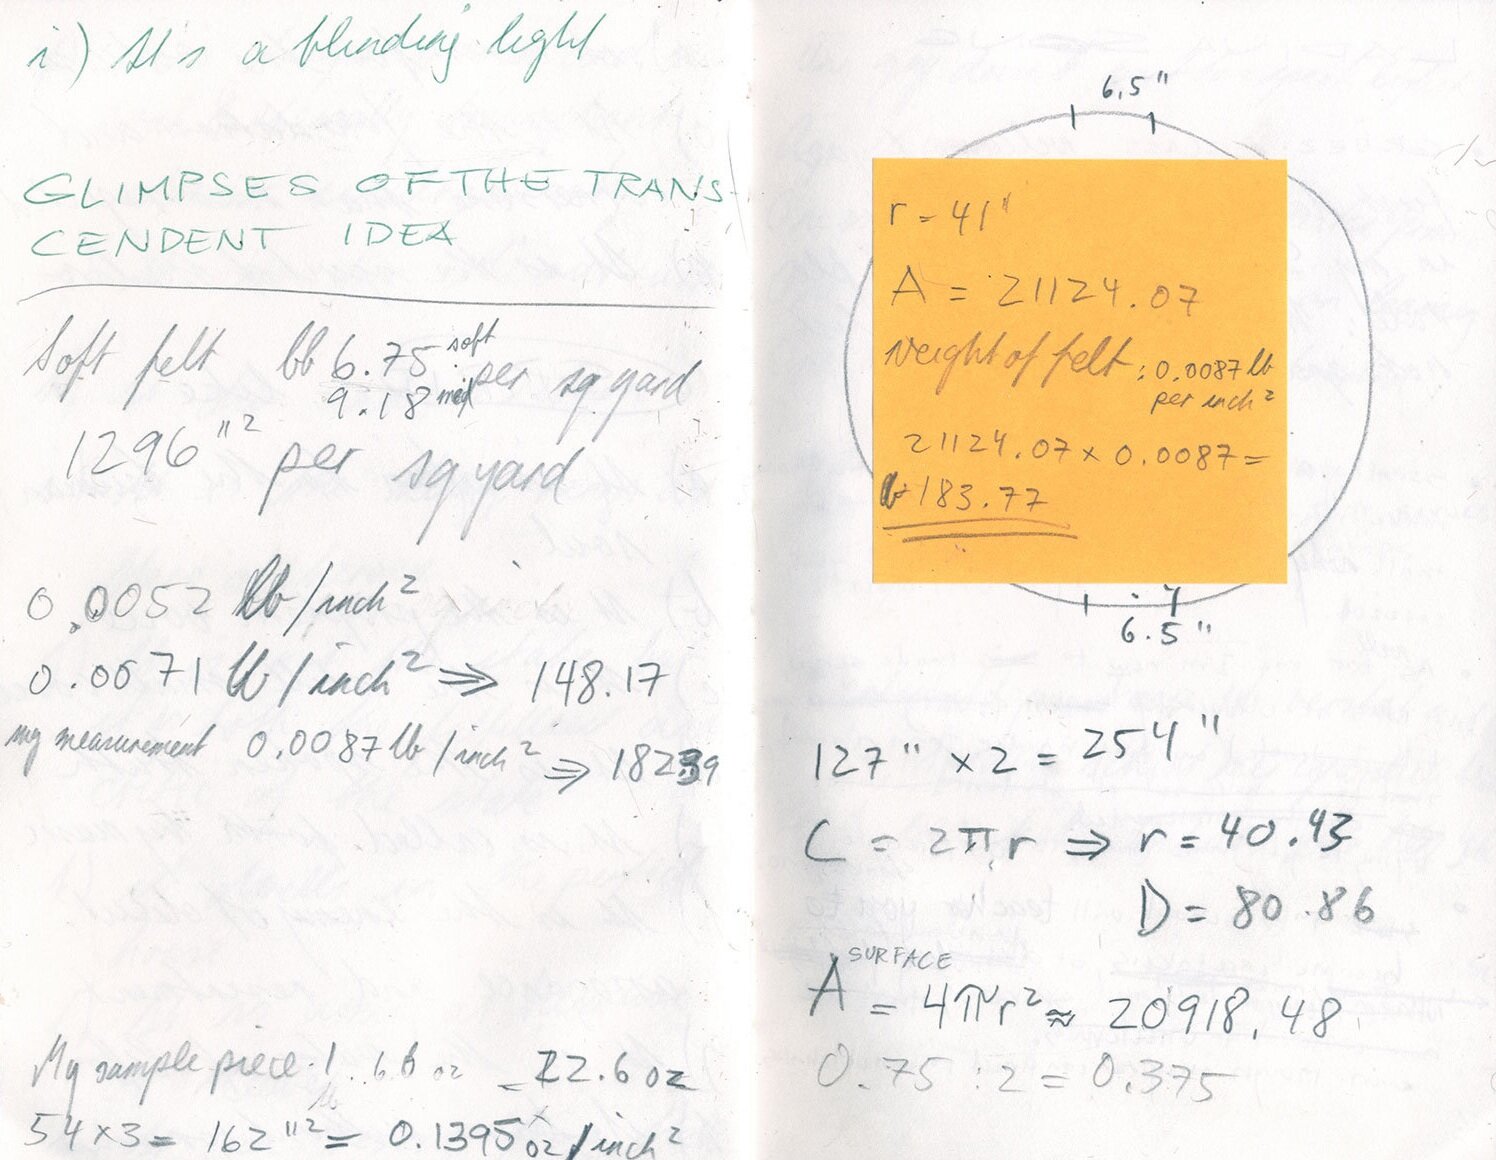 i) It's a blinding light
GLIMPSES OF THE TRANS-
CENDENT IDEA
Soft felt lb 6.75 soft per sq yard
9.18 med
1296"² per sq yard
0.0052 lb/inch²
0.0071 lb/inch² ⇒ 148.17
my measurement 0.0087 lb/inch² ⇒ 182.39
My sample piece 1 6 oz = 22.6 oz
54×3 = 162"² = 0.1395 oz/inch²
6,5"
r = 41"
A = 21124.07
Weight of felt: 0.0087 lb
per inch²
21124.07 × 0.0087 =
lb 183.77
6.5"
127" × 2 = 254"
C = 2πr ⇒ r = 40.43
D = 80.86
A SURFACE = 4πr² ≈ 20918,48
0.75 : 2 = 0.375